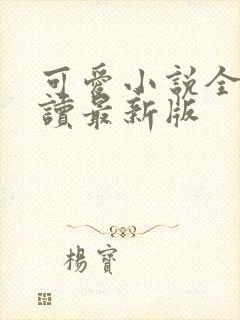 可愛小說全
讀最新版
楊寶